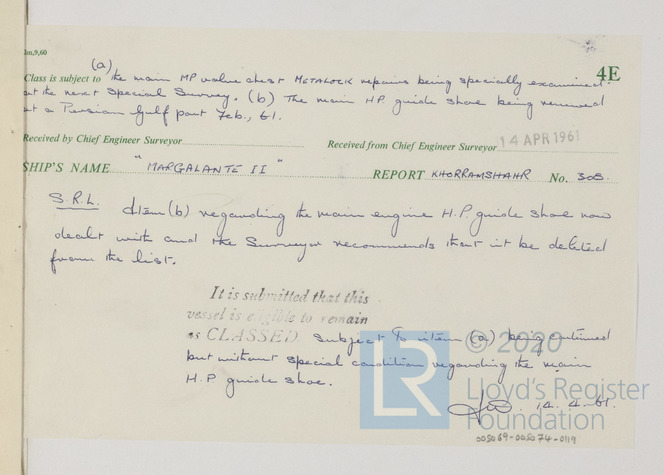 2m,9,60
4E
(a)
Class is subject to the main MP valve chest METALOCK repairs being specially examined
at the next Special Survey. (b) The main HP guide shoe being renewed
at a Persian Gulf port Feb., 61.
Received by Chief Engineer Surveyor
Received from Chief Engineer Surveyor 14 APR 1961
SHIP'S NAME "MARGALANTE II" REPORT KHORRAMSHAHR No. 308.
S.R.L. Item (b) regarding the main engine H.P guide shoe now
dealt with and the Surveyor recommends that it be deleted
from the list.
It is submitted that this
vessel is eligible to remain
as CLASSED subject to item (a) being continued
but without special condition regarding the main
H.P guide shoe.
14.4.61.
© 2020
LR
Lloyd's Register
Foundation
005069-005074-0119